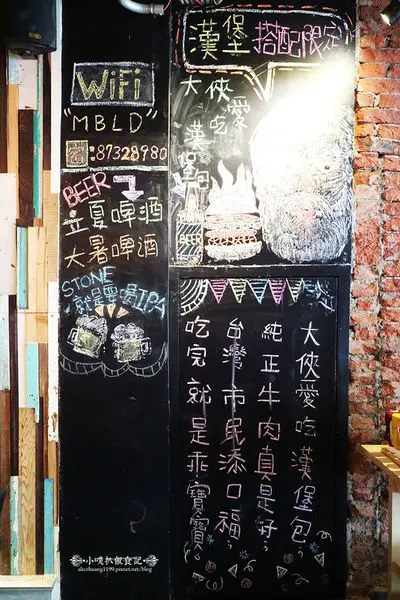 WiFi
"MBLD"
密:87328980
BEER
立夏啤酒
大暑啤酒
STONE
就是要喝IPA
漢堡搭配限定
大俠愛
吃
漢堡包
大俠愛吃漢堡包。
純正牛肉真是好。
台灣市民添口福。
吃完就是乖寶寶。
小噗趴假食記
alicehuang1199.pixnet.net/blog